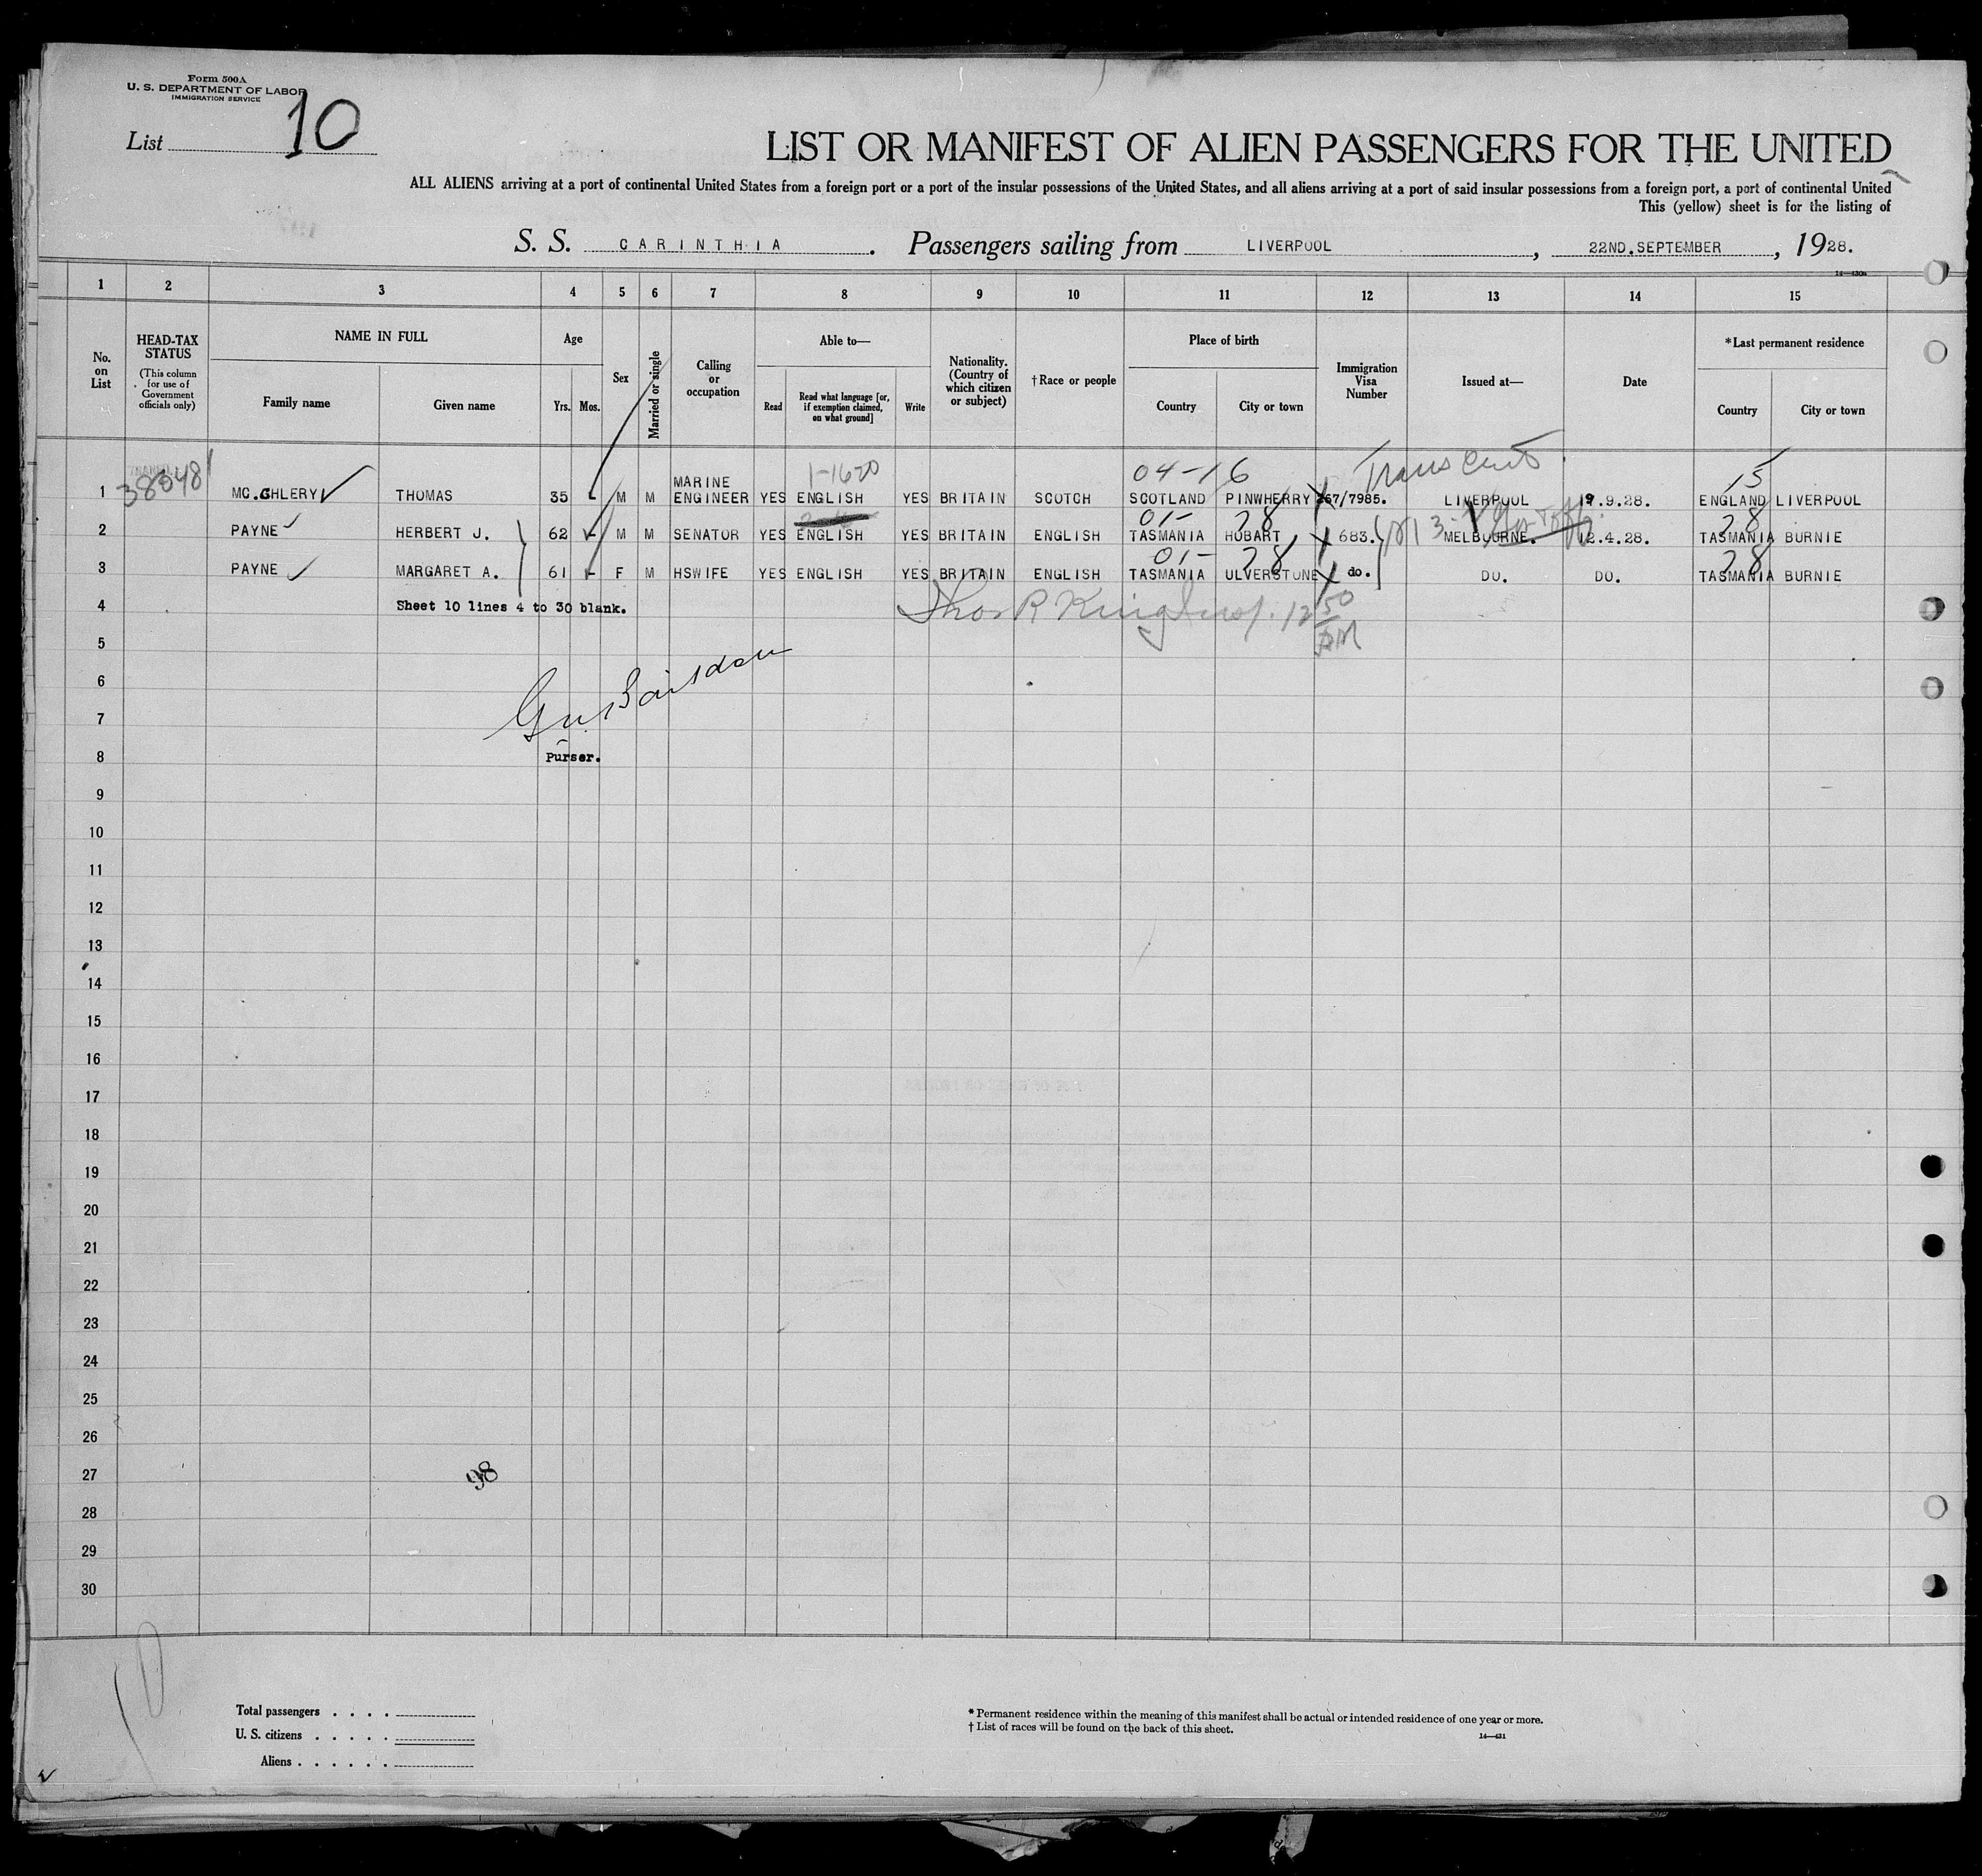 Form 500A
U. S. DEPARTMENT OF LABOR
IMMIGRATION SERVICE
List 10
LIST OR MANIFEST OF ALIEN PASSENGERS FOR THE UNITED
ALL ALIENS arriving at a port of continental United States from a foreign port or a port of the insular possessions of the United States, and all aliens arriving at a port of said insular possessions from a foreign port, a port of continental United
This (yellow) sheet is for the listing of
S. S. CARINTHIA. Passengers sailing from LIVERPOOL, 22ND.SEPTEMBER, 1928.
1 2 3 4 5 6 7 8 9 10 11 12 13 14 15
No. on List
HEAD-TAX STATUS
(This column for use of Government officials only)
NAME IN FULL
Family name
Given name
Age
Yrs. Mos.
Sex
Married or single
Calling or occupation
Able to—
Read
Read what language [or, if exemption claimed, on what ground]
Write
Nationality. (Country of which citizen or subject)
† Race or people
Place of birth
Country
City or town
Immigration Visa Number
Issued at—
Date
* Last permanent residence
Country
City or town
1-1620 04-16 15
1 MC.GHLERY THOMAS 35 - M M MARINE ENGINEER YES ENGLISH YES BRITAIN SCOTCH SCOTLAND PINWHERRY 267/7985. LIVERPOOL 19.9.28. ENGLAND LIVERPOOL
01- 28 28
2 PAYNE HERBERT J. 62 - M M SENATOR YES ENGLISH YES BRITAIN ENGLISH TASMANIA HOBART 683. MELBOURNE. 12.4.28. TASMANIA BURNIE
01- 28 28
3 PAYNE MARGARET A. 61 - F M HSWIFE YES ENGLISH YES BRITAIN ENGLISH TASMANIA ULVERSTONE do. DO. DO. TASMANIA BURNIE
4 Sheet 10 lines 4 to 30 blank. Thos R King Insp. 12 50 PM
5
6
7
8 Purser.
9
10
11
12
13
14
15
16
17
18
19
20
21
22
23
24
25
26
27 98
28
29
30
10
Total passengers . . . .
U. S. citizens . . . . .
Aliens . . . . . .
* Permanent residence within the meaning of this manifest shall be actual or intended residence of one year or more.
† List of races will be found on the back of this sheet.
14—431